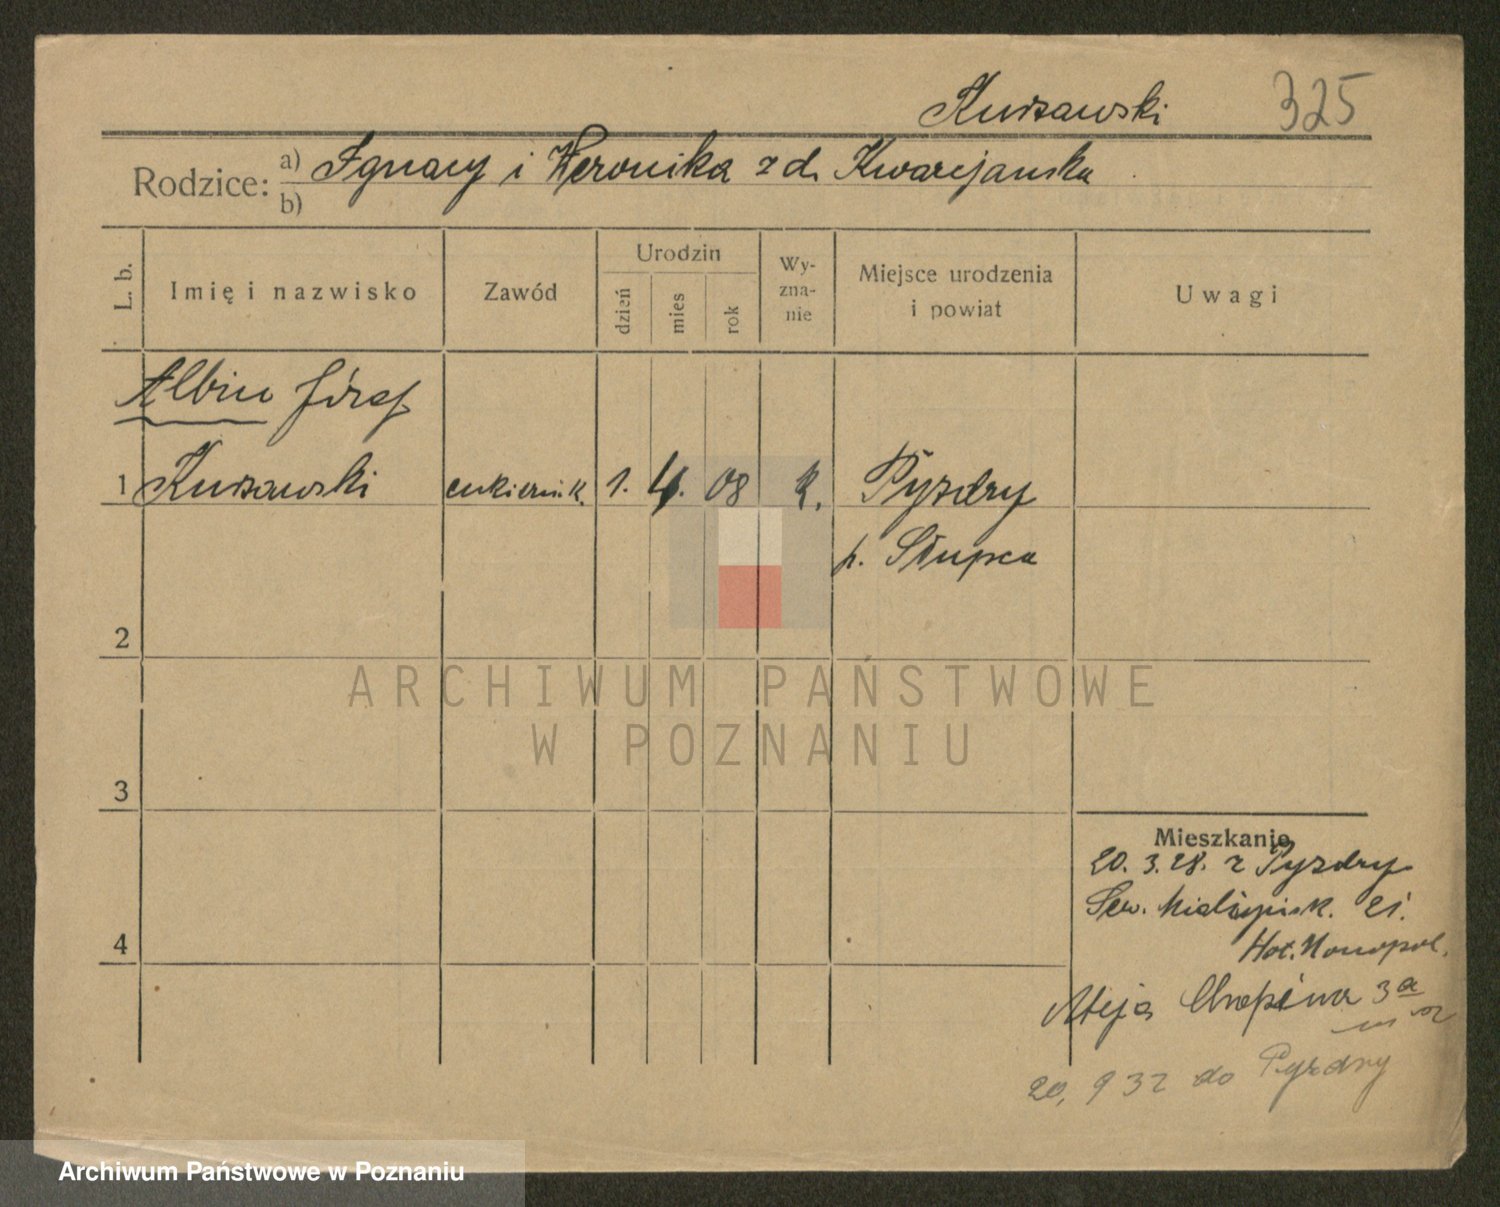 Kurzawski 325
Rodzice: a) Ignacy i Weronika z d. Kwarcjanska
b)
L. b. Imię i nazwisko Zawód Urodzin dzień mies rok Wyznanie Miejsce urodzenia i powiat Uwagi
Albin Józef
1 Kurzawski cukiernik. 1. 4. 08 k. Pyzdry
p. Słupca
2
ARCHIWUM PAŃSTWOWE
W POZNANIU
3
Mieszkanie
20. 3. 28. z Pyzdry
Sew. Mielżyńsk. 21.
Hot. Monopol.
Aleja Chopina 3a
4
20, 9 32 do Pyzdry
Archiwum Państwowe w Poznaniu